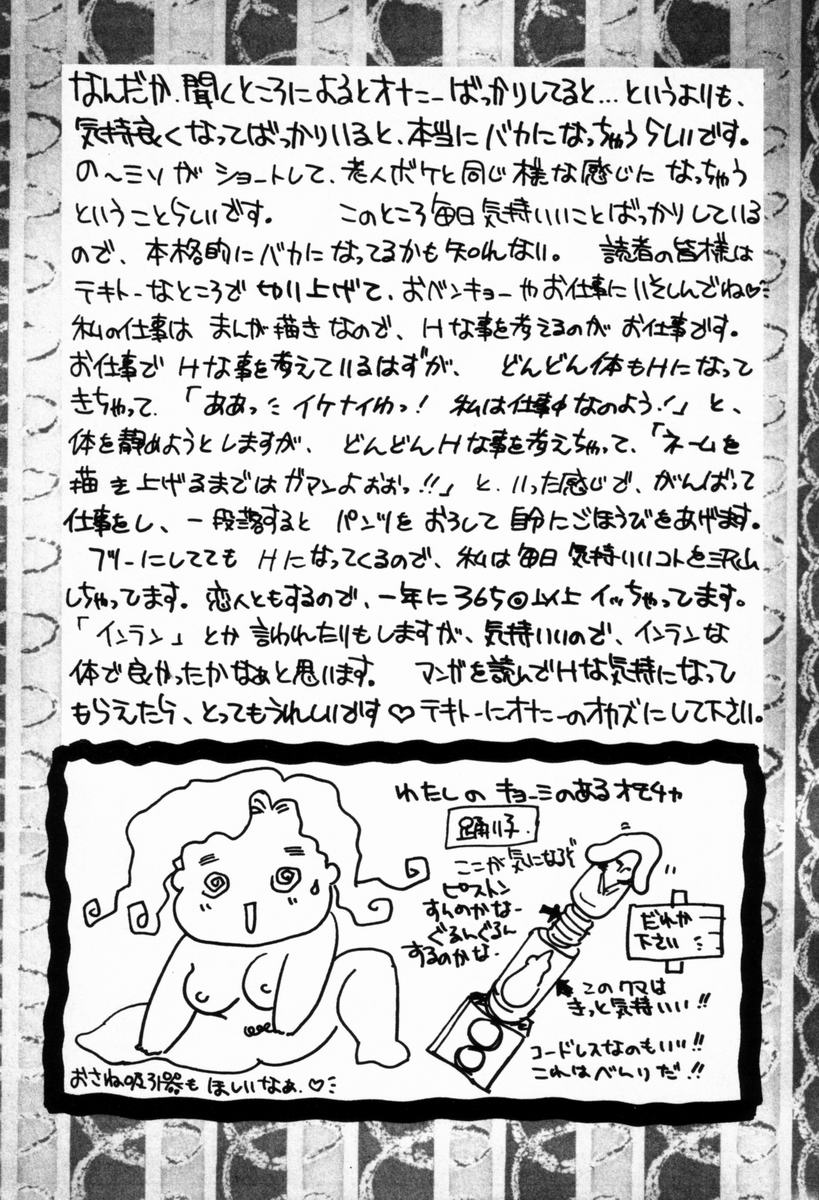 なんだか、聞くところによるとオナニーばっかりしてると…というよりも、
気持良くなってばっかりいると、本当にバカになっちゃうらしいです。
の〜ミソがショートして、老人ボケと同じ様な感じになっちゃう
ということらしいです。 このところ毎日気持いいことばっかりしている
ので、本格的にバカになってるかも知れない。 読者の皆様は
テキトーなところで切り上げて、おベンキョーやお仕事にいそしんでね♡
私の仕事はまんが描きなので、Hな事を考えるのがお仕事です。
お仕事でHな事を考えているはずが、 どんどん体もHになって
きちゃって、「ああっこイケナイわっ! 私は仕事中なのよう!」と、
体を静めようとしますが、 どんどんHな事を考えちゃって、「ネームを
描き上げるまではガマンよおおっ!!」と、いった感じで、がんばって
仕事をし、一段落するとパンツをおろして自分にごほうびをあげます。
フリーにしててもHになってくるので、私は毎日気持いいコトを沢山
しちゃってます。恋人ともするので、一年に365回以上イッちゃってます。
「インラン」とか言われたりもしますが、気持いいので、インランな
体で良かったかなぁと思います。 マンガを読んでHな気持になって
もらえたら、とってもうれしいです♡テキトーにオナニーのオカズにして下さい。
わたしのキョーミのあるオモチャ
踊り子
ここが気になるぞ
ピストン
すんのかなー
ぐるんぐるん
するのかな-
だれか
下さい
このクマは
きっと気持いい!!
コードレスなのもいい!!
これはべんりだ!!
おさね吸引器もほしいなぁ.♡